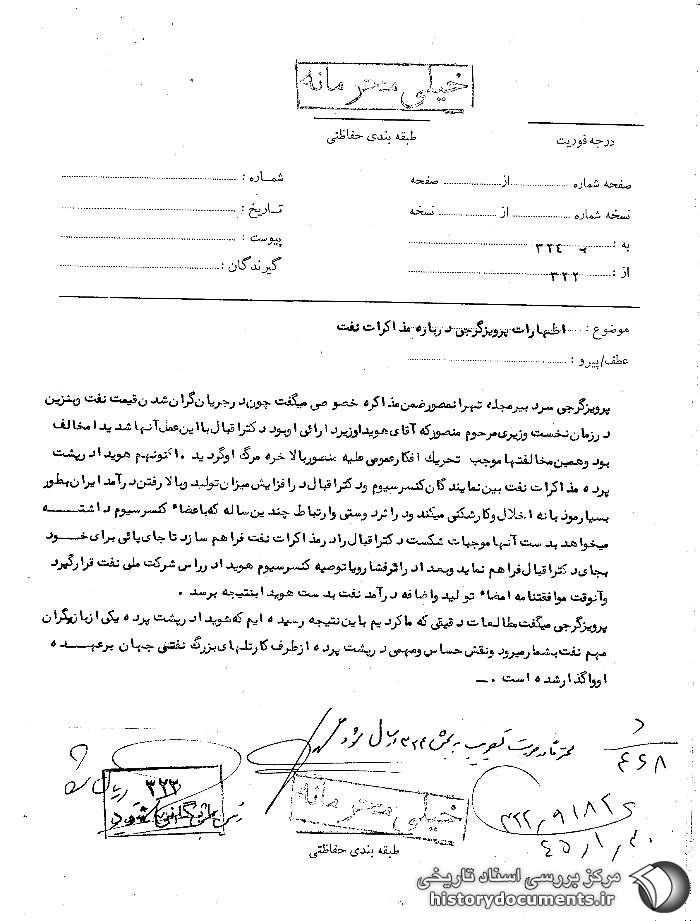 خیلی محرمانه
طبقه بندی حفاظتی
درجه فوریت
صفحه شماره .......... از .......... صفحه
نسخه شماره .......... از .......... نسخه
به : ۳۲۴
از : ۳۲۲
شماره :
تاریخ :
پیوست :
گیرندگان :
موضوع : اظهارات پرویزگرجی درباره مذاکرات نفت
عطف/پیرو :
پرویزگرجی سردبیرمجله تهرانمصورضمن مذاکره خصوصی میگفت چون درجریان گران شدن قیمت نفت وبنزین
درزمان نخست وزیری مرحوم منصورکه آقای هویداوزیردارائی اوبود دکتراقبال بااین عمل آنها شدیدا مخالف
بود وهمین مخالفتها موجب تحریك افکارعمومی علیه منصوربالاخره مرگ اوگردید . اکنونهم هویدا درپشت
پرده مذاکرات نفت بین نمایندگان کنسرسیوم ودکتراقبال درافزایش میزان تولید وبالارفتن درآمد ایران بطور
بسیارموذیانه اخلال وکارشکنی میکند ودراثردوستی وارتباط چندین ساله که بااعضاء کنسرسیوم داشته
میخواهد بدست آنها موجبات شکست دکتراقبال رادرمذاکرات نفت فراهم سازد تاجای پائی برای خود
بجای دکتراقبال فراهم نماید وبعد ادراثرفشارویاتوصیه کنسرسیوم هویدا درراس شرکت ملی نفت قرارگیرد
وآنوقت موافقتنامه امضاء تولید واضافه درآمد نفت بدست هویدا بنتیجه برسد .
پرویزگرجی میگفت مطالعات دقیقی که ماکردیم باین نتیجه رسیده ایم که هویدا درپشت پرده یکی ازبازیگران
مهم نفت بشمارمیرود ونقش حساس ومهمی درپشت پرده ازطرف کارتلهای بزرگ نفتی جهان برعهده
اوواگذارشده است .
۴۶۸
۳۲۲
خیلی محرمانه
طبقه بندی حفاظتی
مرکز بررسی اسناد تاریخی
historydocuments.ir